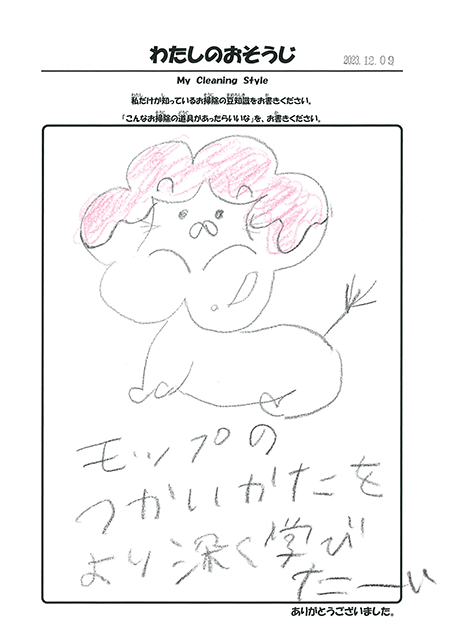 わたしのおそうじ
2023.12.09
My Cleaning Style
私だけが知っているお掃除の豆知識をお書きください。
「こんなお掃除の道具があったらいいな」を、お書きください。
モップの
つかいかたを
より深く学び
たーい
ありがとうございました。